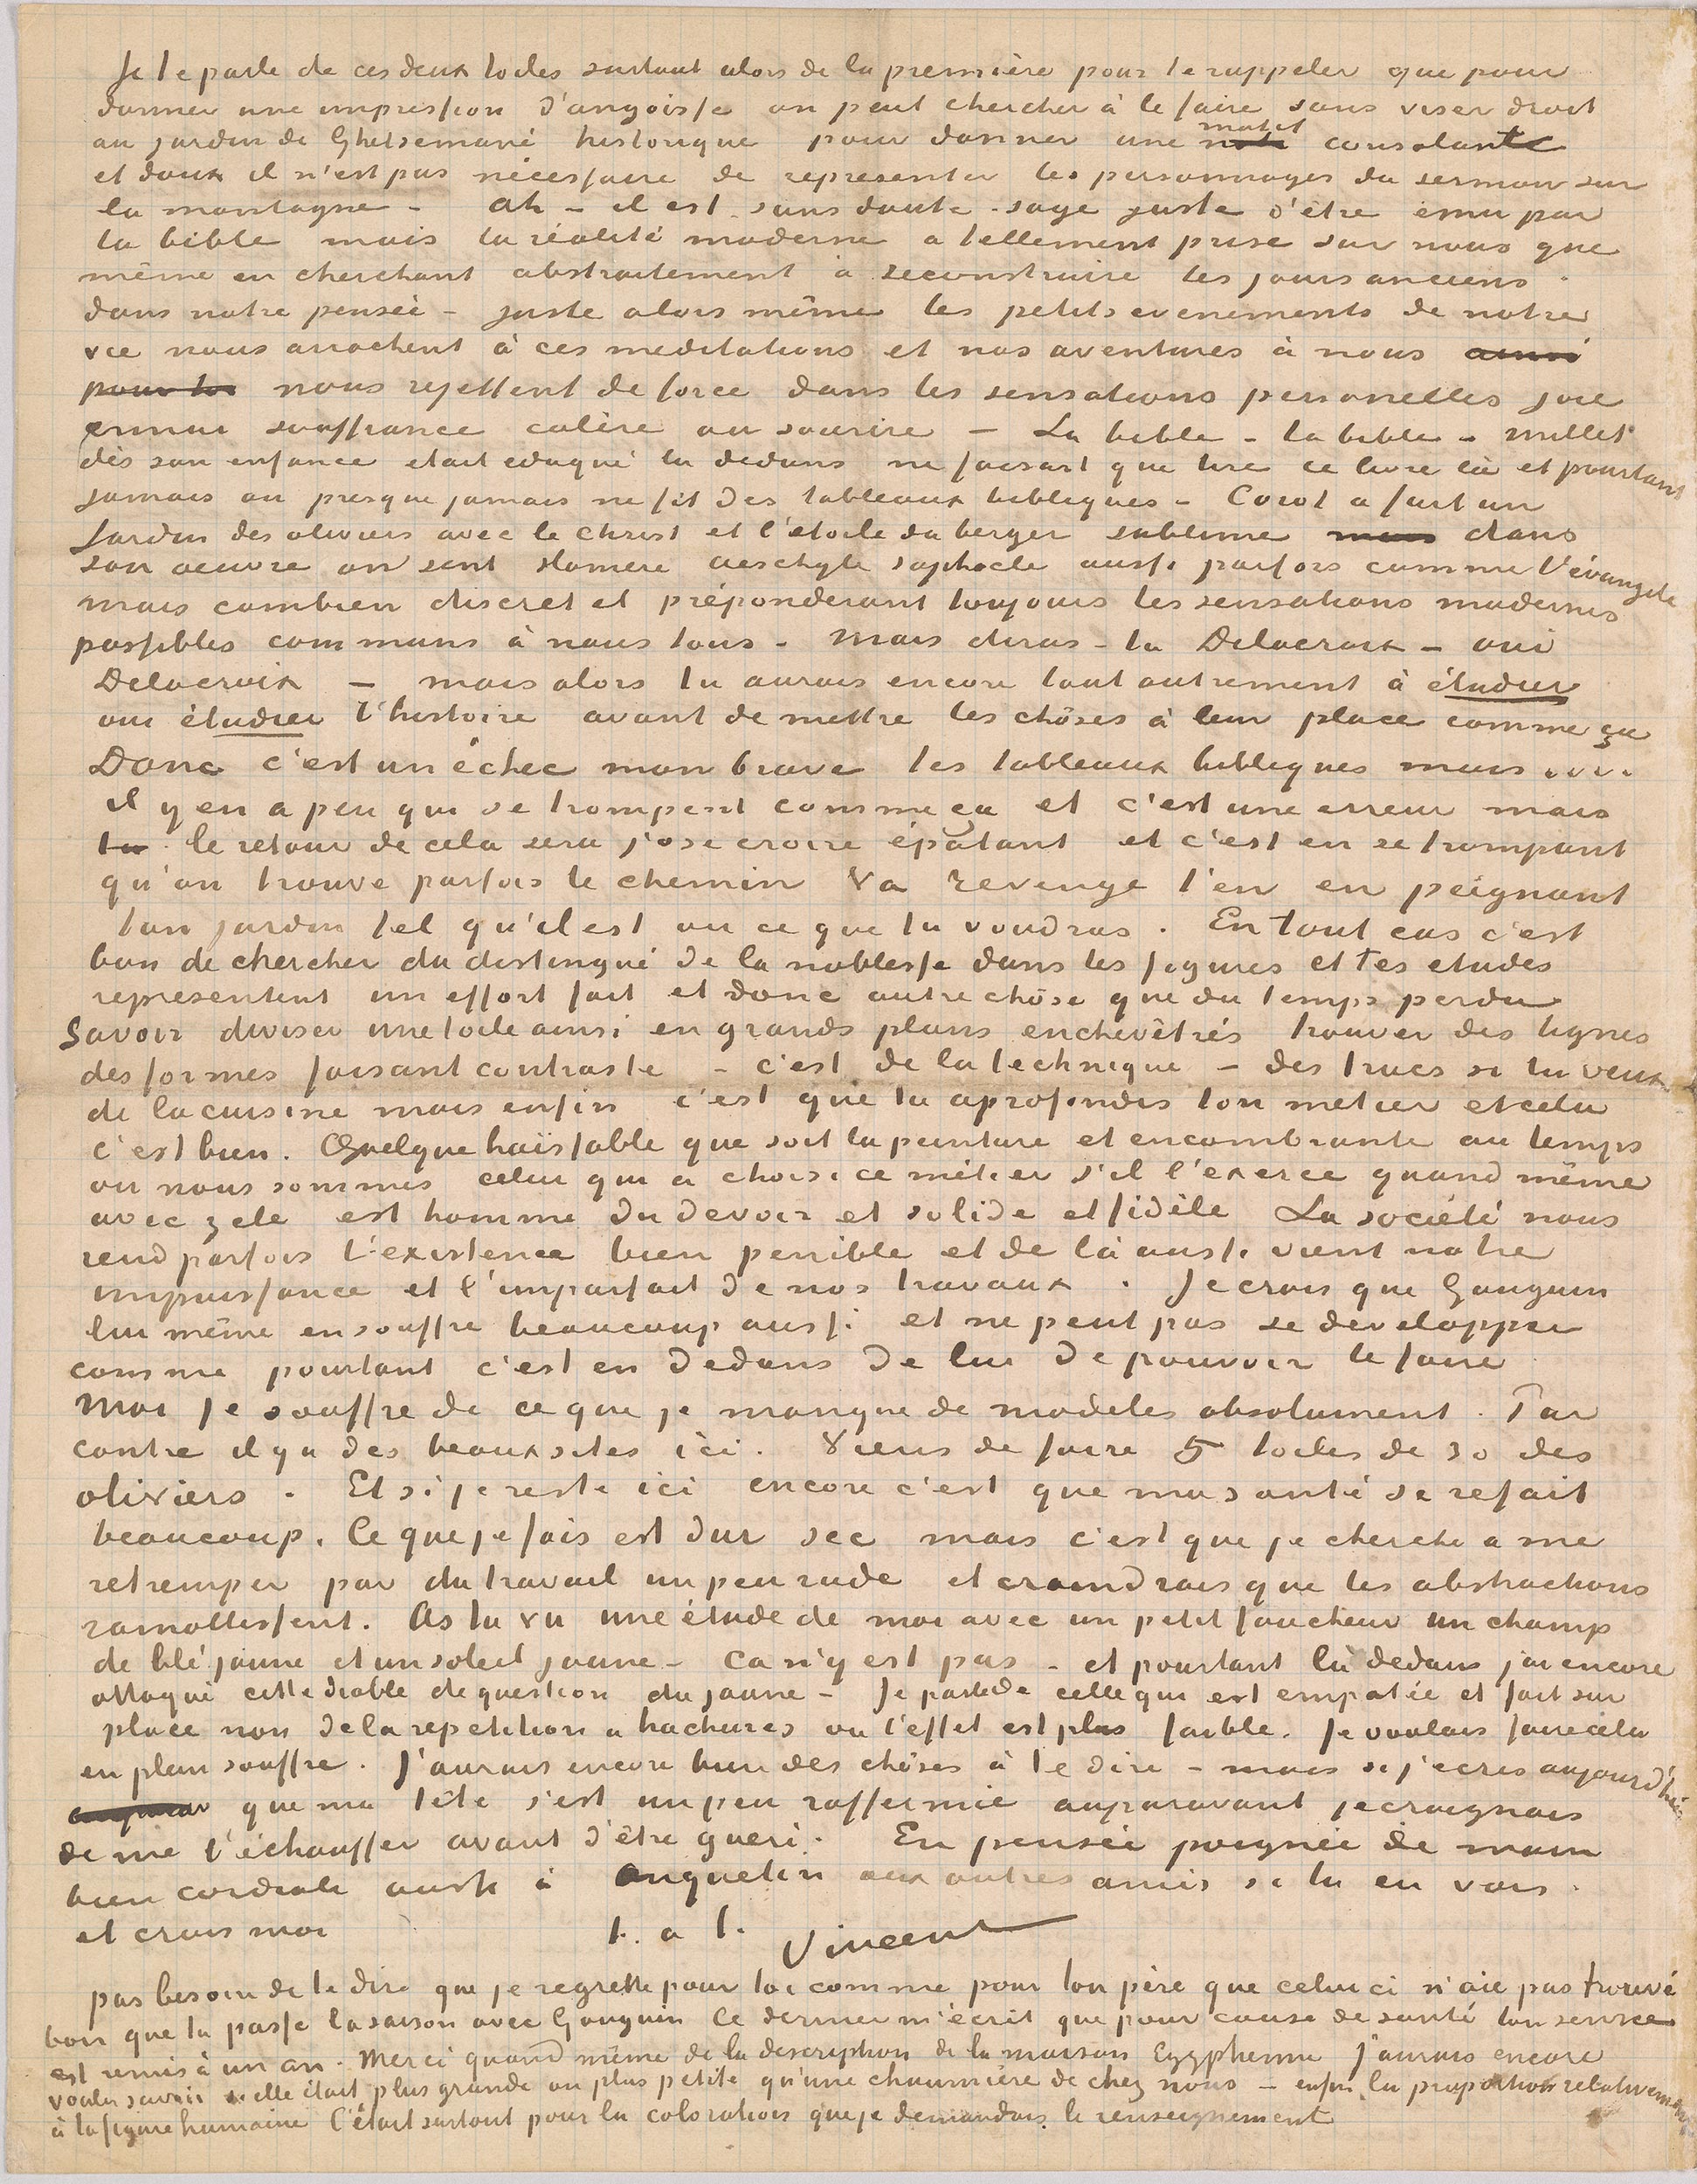 Je te parle de ces deux toiles surtout alors de la première pour te rappeler que pour
donner une impression d'angoisse on peut chercher à le faire sans viser droit
au jardin de Ghetsemané historique pour donner une motif consolant
et doux il n'est pas nécessaire de representer les personnages du sermon sur
la montagne – ah – il est sans doute sage juste d'être ému par
la bible mais la réalité moderne a tellement prise sur nous que
même en cherchant abstraitement à reconstruire les jours anciens
dans notre pensée – juste alors même les petits evenements de notre
vie nous arrachent à ces meditations et nos aventures à nous ainsi
pour toi nous rejettent de force dans les sensations personelles joie
ennui souffrance colère ou sourire – La bible – la bible – Millet
dès son enfance etait eduqué la dedans ne faisait que lire ce livre là et pourtant
jamais ou presque jamais ne fit des tableaux bibliques – Corot a fait un
Jardin des oliviers avec le Christ et l'étoile du berger sublime mais dans
son oeuvre on sent Homère Aeschyle Sophocle aussi parfois comme l'évangile
mais combien discret et préponderant toujours les sensations modernes
possibles communs à nous tous – Mais diras-tu Delacroix – oui
Delacroix – mais alors tu aurais encore tout autrement à étudier
oui étudier l'histoire avant de mettre les chôses à leur place comme ça
Donc c'est un échec mon brave les tableaux bibliques mais ....
il y en a peu qui se trompent comme ça et c'est une erreur mais
tu le retour de cela sera j'ose croire épatant et c'est en se trompant
qu'on trouve parfois le chemin Va revenge t'en en peignant
ton jardin tel qu'il est ou ce que tu voudras. En tout cas c'est
bon de chercher du distingué de la noblesse dans les figures et tes etudes
representent un effort fait et donc autre chôse que du temps perdu
Savoir diviser une toile ainsi en grands plans enchevêtrés trouver des lignes
des formes faisant contraste – c'est de la technique – des trucs si tu veux
de la cuisine mais enfin c'est que tu aprofondis ton metier et cela
c'est bien. Quelque haïssable que soit la peinture et encombrante au temps
ou nous sommes celui qui a choisi ce métier s'il l'exerce quand même
avec zele est homme du devoir et solide et fidèle La société nous
rend parfois l'existence bien penible et de là aussi vient notre
impuissance et l'imparfait de nos travaux. Je crois que Gauguin
lui même en souffre beaucoup aussi et ne peut pas se developper
comme pourtant c'est en dedans de lui de pouvoir le faire
Moi je souffre de ce que je manque de modèles absolument. Par
contre il y a des beaux sites ici. Viens de faire 5 toiles de 30 des
oliviers. Et si je reste ici encore c'est que ma santé se refait
beaucoup. Ce que je fais est dur sec mais c'est que je cherche a me
retremper par du travail un peu rude et craindrais que les abstractions
ramollissent. As tu vu une étude de moi avec un petit faucheur un champ
de blé jaune et un soleil jaune – ca n'y est pas – et pourtant là dedans j'ai encore
attaqué cette diable de question du jaune – Je parle de celle qui est empatée et fait sur
place non de la repetition a hachures ou l'effet est plus faible. Je voulais faire cela
en plein souffre. J'aurais encore bien des chôses à te dire – mais si j'ecris aujourd'hui
que ma tête s'est un peu raffermie auparavant je craignais
de me l'échauffer avant d'être gueri. En pensée poignée de main
bien cordiale aussi à Anquetin aux autres amis si tu en vois.
et crois moi
t. a t. Vincent
pas besoin de te dire que je regrette pour toi comme pour ton père que celui ci n'aie pas trouvé
bon que tu passe la saison avec Gauguin Ce dernier m'écrit que pour cause de santé ton service
est remis à un an. Merci quand même de la description de la maison Egyptienne J'aurais encore
voulu savoir si elle était plus grande ou plus petite qu'une chaumière de chez nous – enfin la proportion relativement
à la figure humaine C'était surtout pour la coloration que je demandais le renseignement